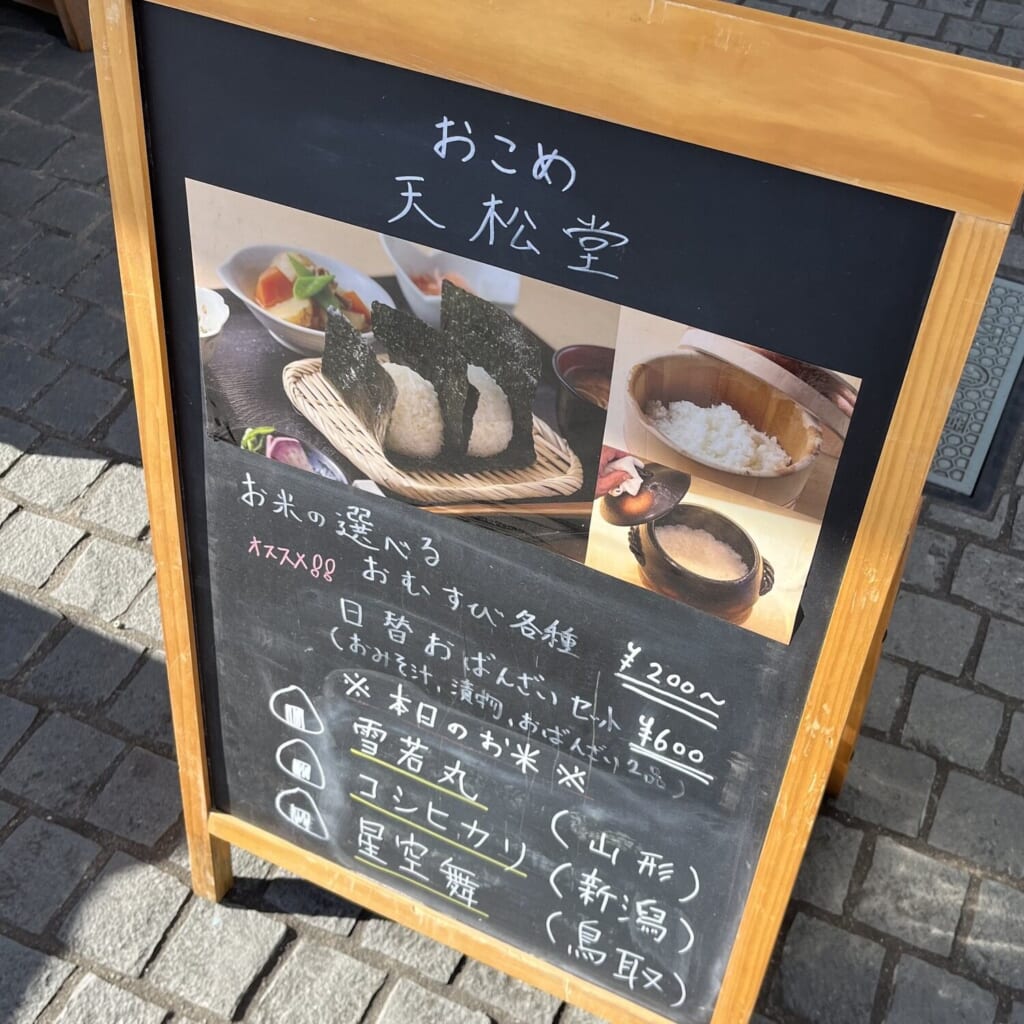 おこめ
天松堂
お米の選べる
オススメ!!
おむすび各種 ¥200〜
日替おばんざいセット ¥600
(おみそ汁、漬物、おばんざい2品)
※本日のお米※
雪若丸 (山形)
コシヒカリ (新潟)
星空舞 (鳥取)